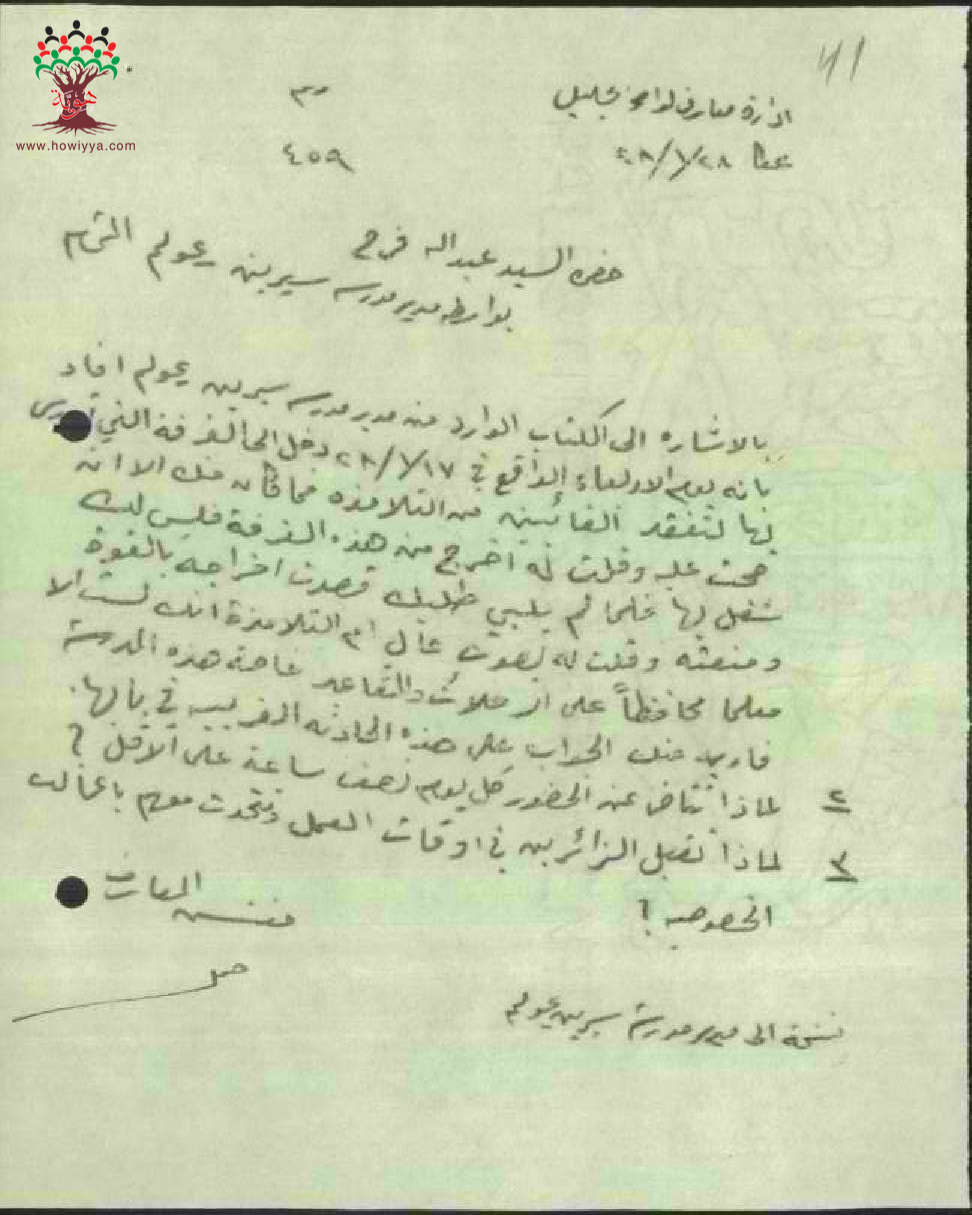 هوية
www.howiyya.com
41
ادارة معارف لواء الجليل
عكا ٢٨/١/٤٨
٤٥٩
حضرة السيد عبدالله فرحي
بواسطة مدير مدرسة سيرين عولم المحترم
بالاشارة الى الكتاب الوارد من مدير مدرسة سيرين عولم افاد
بانه يوم الاربعاء الواقع في ٢٨/١/١٧ دخل الى الغرفة التي تدرس
بها لتفقد الغائبين من التلامذه فما كان منك الا ان
صحت عليه وقلت له اخرج من هذه الغرفة فليس لك
شغل بها فلما لم يلبي طلبك قصدت اخراجه بالقوة
ومنعته وقلت له بصوت عال امام التلامذة انك لست الا
معلما محافظاً على الرحلات والمقاعد خاصة هذه المدرسة
فاريد منك الجواب على هذه الحادثه الغريبه في بابها.
٢ لماذا تتأخر عن الحضور كل يوم نصف ساعة على الاقل ؟
٣ لماذا تقبل الزائرين في اوقات العمل وتتحدث معهم باعمالك
الخصوصيه ؟
مفتش المعارف
نسخة الى مدير مدرسة سيرين عولم